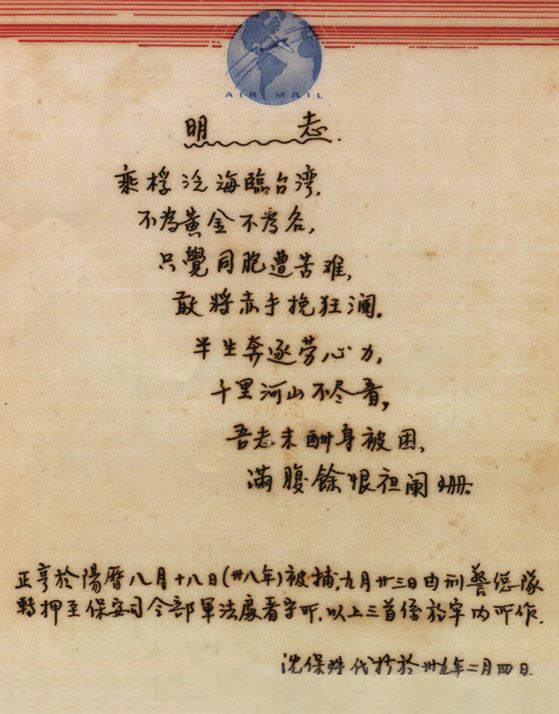 AIR MAIL
明志.
乘桴泛海臨台灣,
不為黃金不為名,
只覺同胞遭苦难,
敢將赤手挽狂澜.
半生奔逐劳心力,
千里河山不尽看,
吾志未酬身被困,
滿腹餘恨袒阑珊.
正亨於陽曆八月十八日(卅八年)被捕,九月廿三日由刑警總隊
轉押至保安司令部軍法處看守所,以上三首係於牢內所作.
沈保珠代抄於卅九年二月四日.